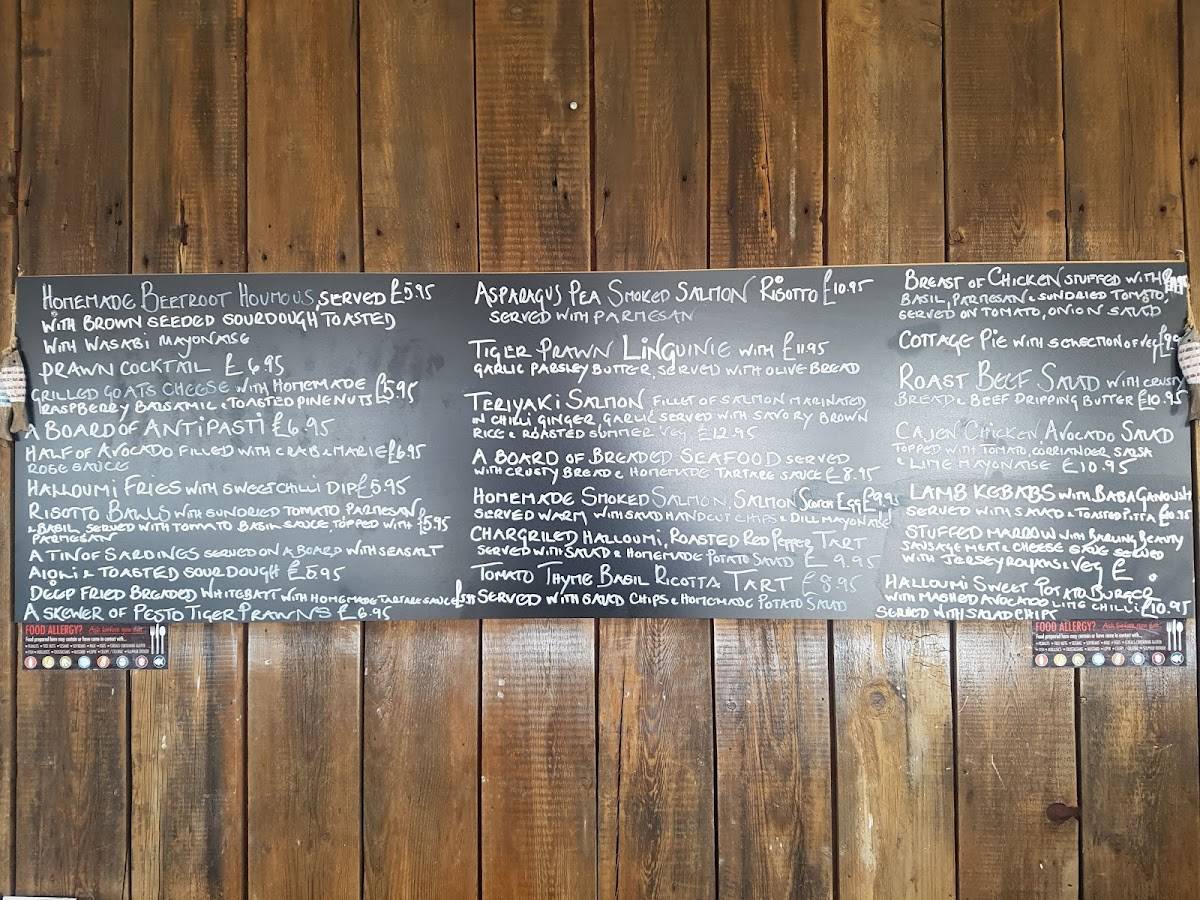 HOMEMADE BEETROOT HOUMOUS, SERVED £5.95
WITH BROWN SEEDED SOURDOUGH TOASTED
WITH WASABI MAYONAISE
PRAWN COCKTAIL £6.95
GRILLED GOATS CHEESE WITH HOMEMADE £5.95
RASPBERRY BALSAMIC & TOASTED PINENUTS
A BOARD OF ANTIPASTI £6.95
HALF OF AVOCADO FILLED WITH CRAB & MARIE £6.95
ROSE SAUCE
HALLOUMI FRIES WITH SWEET CHILLI DIP £5.95
RISOTTO BALLS WITH SUNDRIED TOMATO PARMESAN
& BASIL SERVED WITH TOMATO BASIL SAUCE TOPPED WITH £5.95
PARMESAN
A TIN OF SARDINES SERVED ON A BOARD WITH SEASALT
AIOLI & TOASTED SOURDOUGH £5.95
DEEP FRIED BREADED WHITEBATT WITH HOMEMADE TARTARE SAUCE
A SKEWER OF PESTO TIGER PRAWNS £6.95
ASPARAGUS PEA SMOKED SALMON RISOTTO £10.95
SERVED WITH PARMESAN
TIGER PRAWN LINGUINIE WITH £11.95
GARLIC PARSLEY BUTTER, SERVED WITH OLIVE BREAD
TERIYAKI SALMON FILLET OF SALMON MARINATED
IN CHILLI GINGER, GARLIC SERVED WITH SAVORY BROWN
RICE & ROASTED SUMMER VEG £12.95
A BOARD OF BREADED SEAFOOD SERVED
WITH CRUSTY BREAD & HOMEMADE TARTARE SAUCE £8.95
HOMEMADE SMOKED SALMON, SALMON SCOTCH EGG
SERVED WARM WITH SALAD HANDCUT CHIPS & DILL MAYONAISE
CHARGRILLED HALLOUMI, ROASTED RED PEPPER TART
SERVED WITH SALAD & HOMEMADE POTATO SALAD £9.95
TOMATO THYME BASIL RICOTTA TART £8.95
SERVED WITH SALAD CHIPS & HOMEMADE POTATO SALAD
BREAST OF CHICKEN STUFFED WITH
BASIL, PARMESAN & SUNDRIED TOMATO,
SERVED ON TOMATO, ONION SALAD
COTTAGE PIE WITH SELECTION OF VEG
ROAST BEEF SALAD WITH CRUSTY
BREAD & BEEF DRIPPING BUTTER £10.95
CAJEN CHICKEN, AVOCADO SALAD
TOPPED WITH TOMATO, CORRIANDER SALSA
& LIME MAYONAISE £10.95
LAMB KEBABS WITH BABA GANOUSH
SERVED WITH SALAD & TOASTED PITTA £10.95
STUFFED MARROW WITH
SAUSAGE MEAT & CHEESE SAUCE SERVED
WITH JERSEY ROYALS & VEG £
HALLOUMI SWEET POTATO BURGER
WITH MASHED AVOCADO LIME CHILLI £10.95
SERVED WITH SALAD CHIPS
FOOD ALLERGY? Ask before you eat
Food prepared here may contain or have come in contact with...
FOOD ALLERGY? Ask before you eat
Food prepared here may contain or have come in contact with...